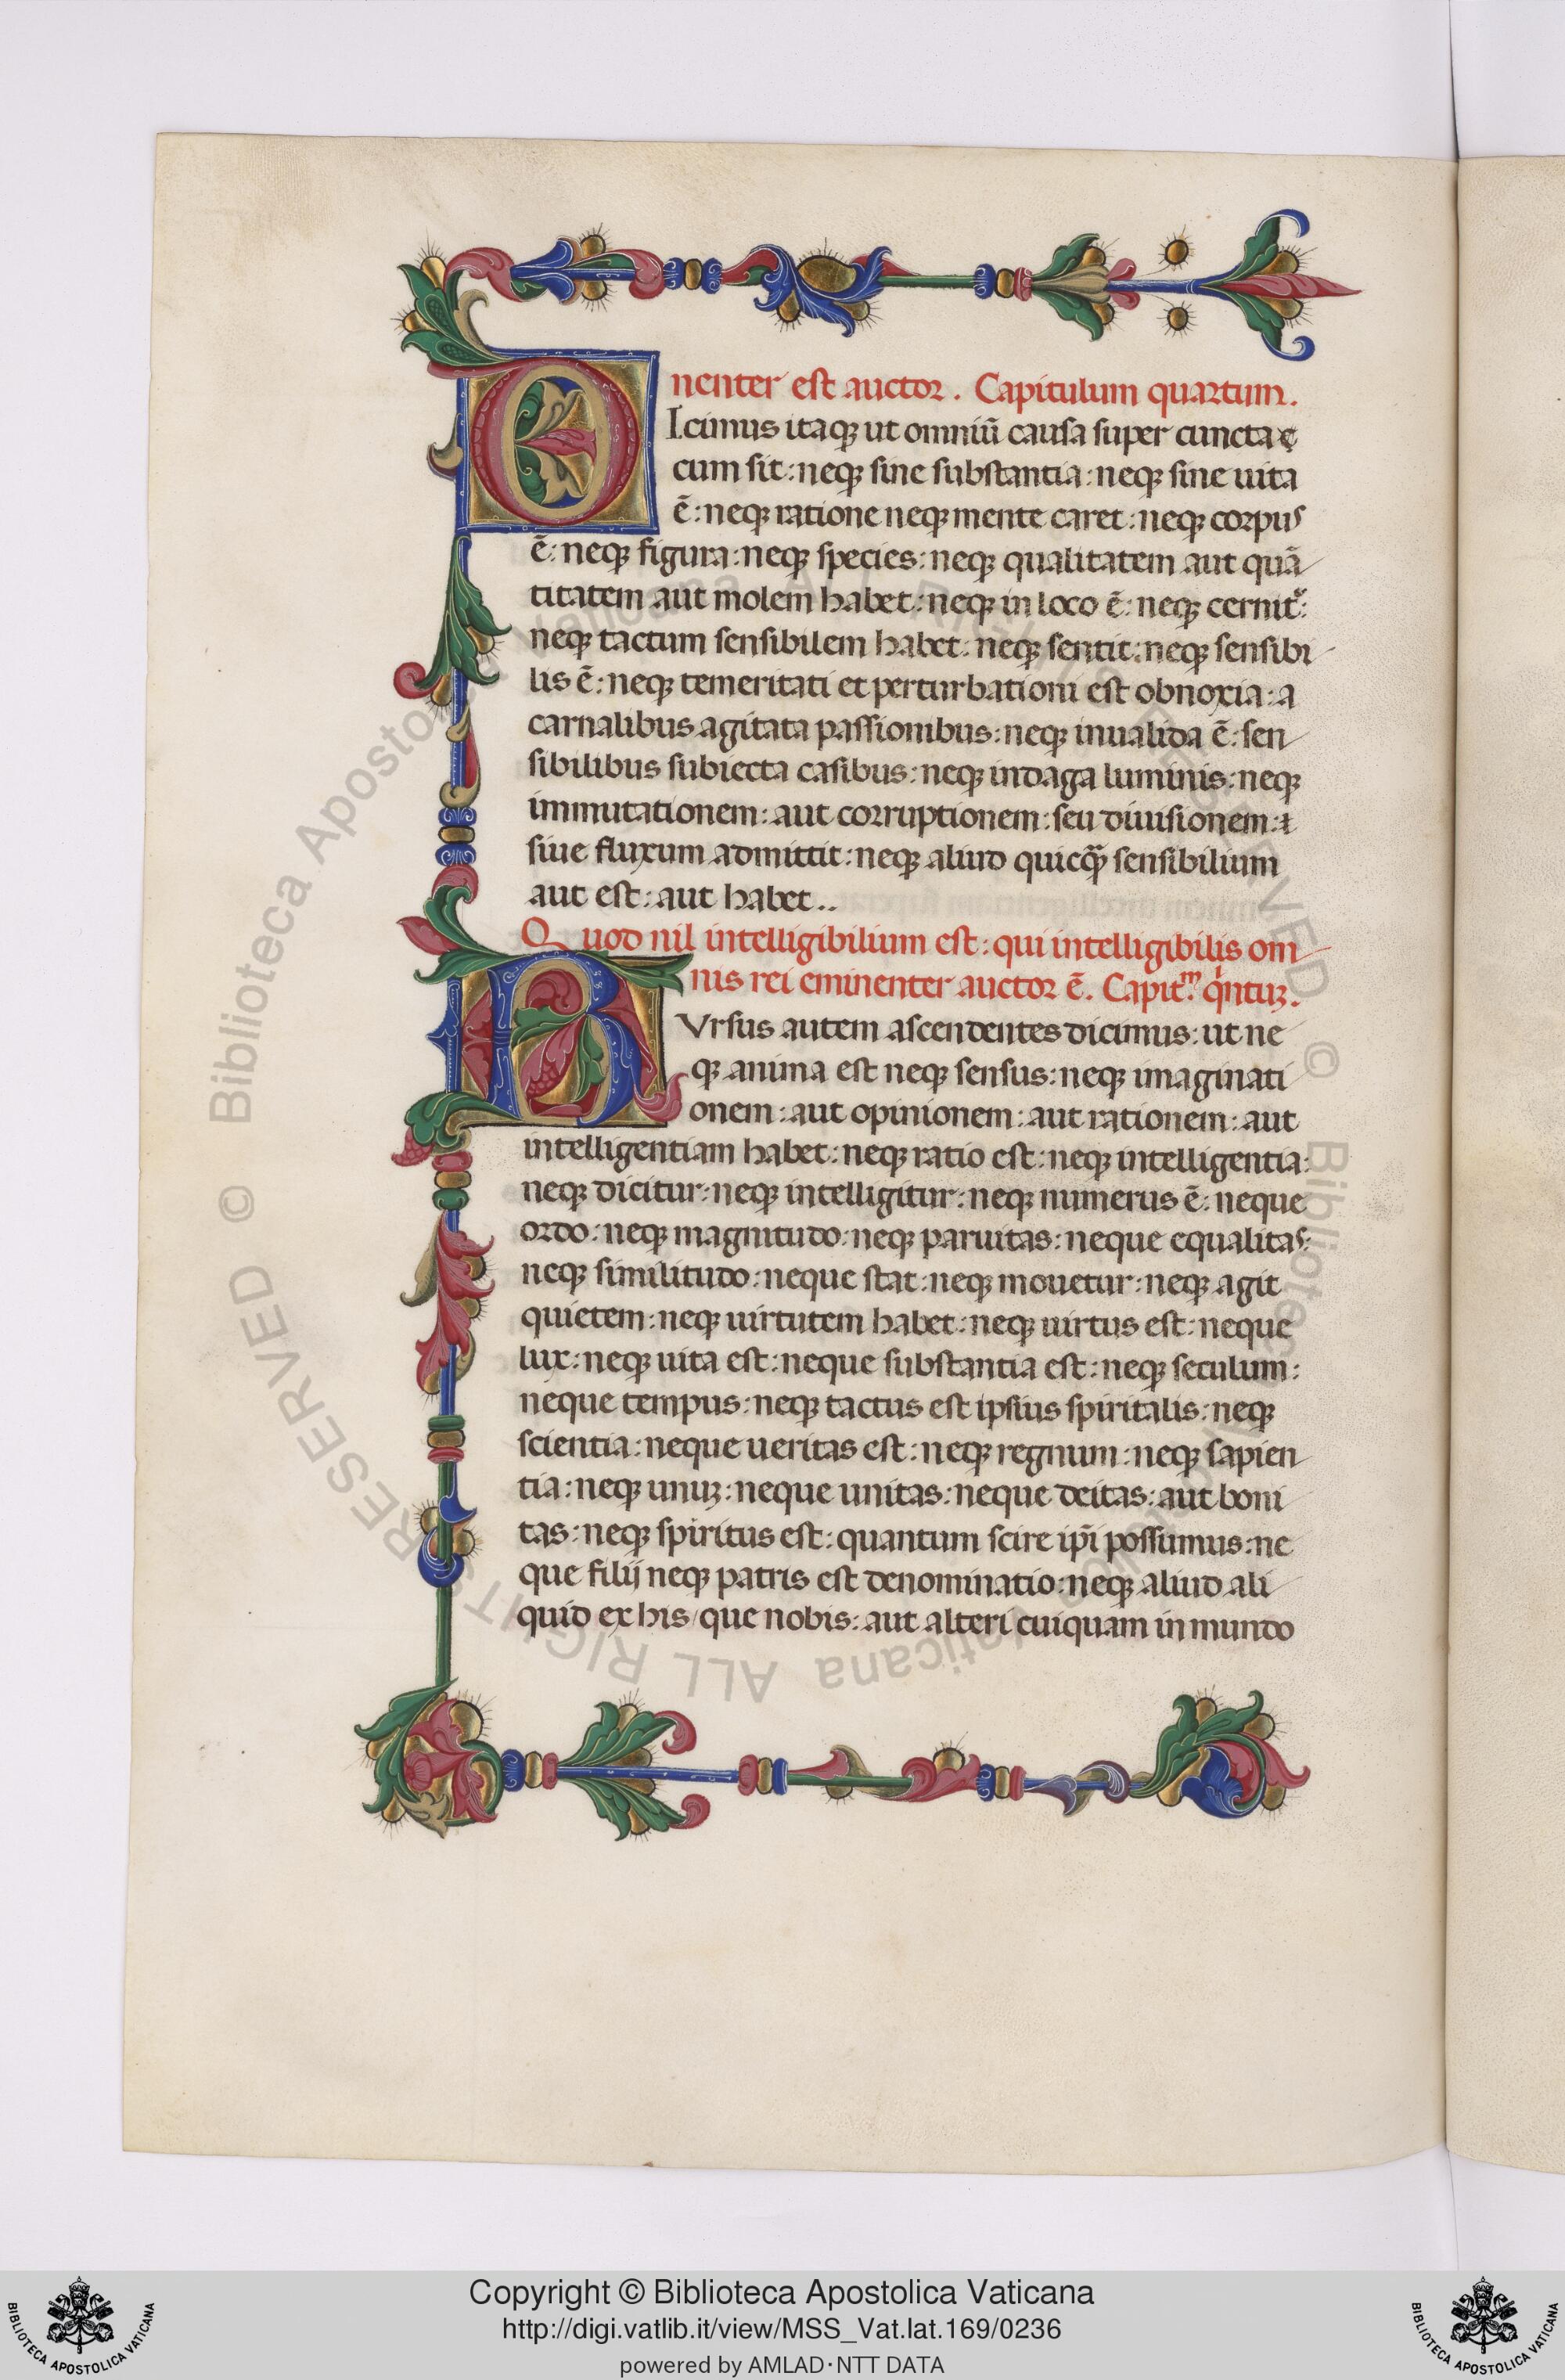 nenter est auctor. Capitulum quartum.
DIcimus itaqꝫ ut omniū causa super cuncta
cum sit: neqꝫ sine substantia: neqꝫ sine uita
ē: neqꝫ ratione neqꝫ mente caret: neqꝫ corpus
ē: neqꝫ figura: neqꝫ species: neqꝫ qualitatem aut quā
titatem aut molem habet: neqꝫ in loco ē: neqꝫ cernit᷑:
neqꝫ tactum sensibilem habet: neqꝫ sentit: neqꝫ sensibi
lis ē: neqꝫ temeritati et perturbationi est obnoxia: a
carnalibus agitata passionibus: neqꝫ inualida ē: sen
sibilibus subiecta casibus: neqꝫ indaga luminis: neqꝫ
immutationem: aut corruptionem: seu diuisionem:
siue fluxum admittit: neqꝫ aliud quicqꝫ̄ sensibilium
aut est: aut habet..
Quod nil intelligibilium est: qui intelligibilis om
nis rei eminenter auctor ē. Capit.ᵐ qͥntuꝫ.
RVrsus autem ascendentes dicimus: ut ne
qꝫ anima est neqꝫ sensus: neqꝫ imaginati
onem: aut opinionem: aut rationem: aut
intelligentiam habet: neqꝫ ratio est: neqꝫ intelligentia:
neqꝫ dicitur: neqꝫ intelligitur: neqꝫ numerus ē: neque
ordo: neqꝫ magnitudo: neqꝫ paruitas: neque equalitas:
neqꝫ similitudo: neque stat: neqꝫ mouetur: neqꝫ agit
quietem: neqꝫ uirtutem habet: neqꝫ uirtus est: neque
lux: neqꝫ uita est: neque substantia est: neqꝫ seculum:
neque tempus: neqꝫ tactus est ipsius spiritalis: neqꝫ
scientia: neque ueritas est: neqꝫ regnum: neqꝫ sapien
tia: neqꝫ unuꝫ: neque unitas: neque deitas: aut boni
tas: neqꝫ spiritus est: quantum scire ip̄i possumus: ne
que filij neqꝫ patris est denominatio: neqꝫ aliud ali
quid ex his/ que nobis: aut alteri cuiquam in mundo
© Biblioteca Apostolica Vaticana ALL RIGHTS RESERVED © Biblioteca Apostolica Vaticana ALL RIGHTS RESERVED
Copyright © Biblioteca Apostolica Vaticana
http://digi.vatlib.it/view/MSS_Vat.lat.169/0236
powered by AMLAD·NTT DATA
BIBLIOTECA APOSTOLICA VATICANA
BIBLIOTECA APOSTOLICA VATICANA